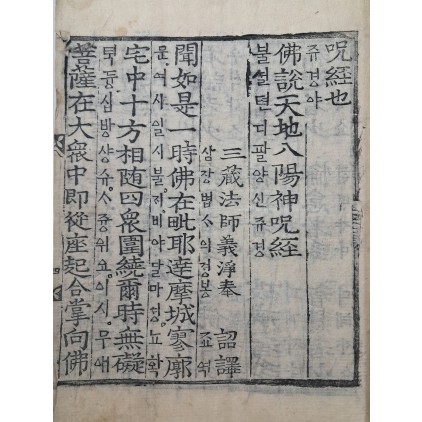 呪經也
쥬경야
佛說天地八陽神呪經
불셜텬디팔양신쥬경
三藏法師義淨奉 詔譯
삼장법ᄉᆞ의졍봉 죠역
聞如是一時佛在毗耶達摩城寥廓
문여시일시불ᄌᆡ비야달마셩뇨확
宅中十方相随四衆圍繞爾時無礙
ᄐᆡᆨ듕십방샹슈ᄉᆞ즁위요이시무애
菩薩在大衆中即從座起合掌向佛